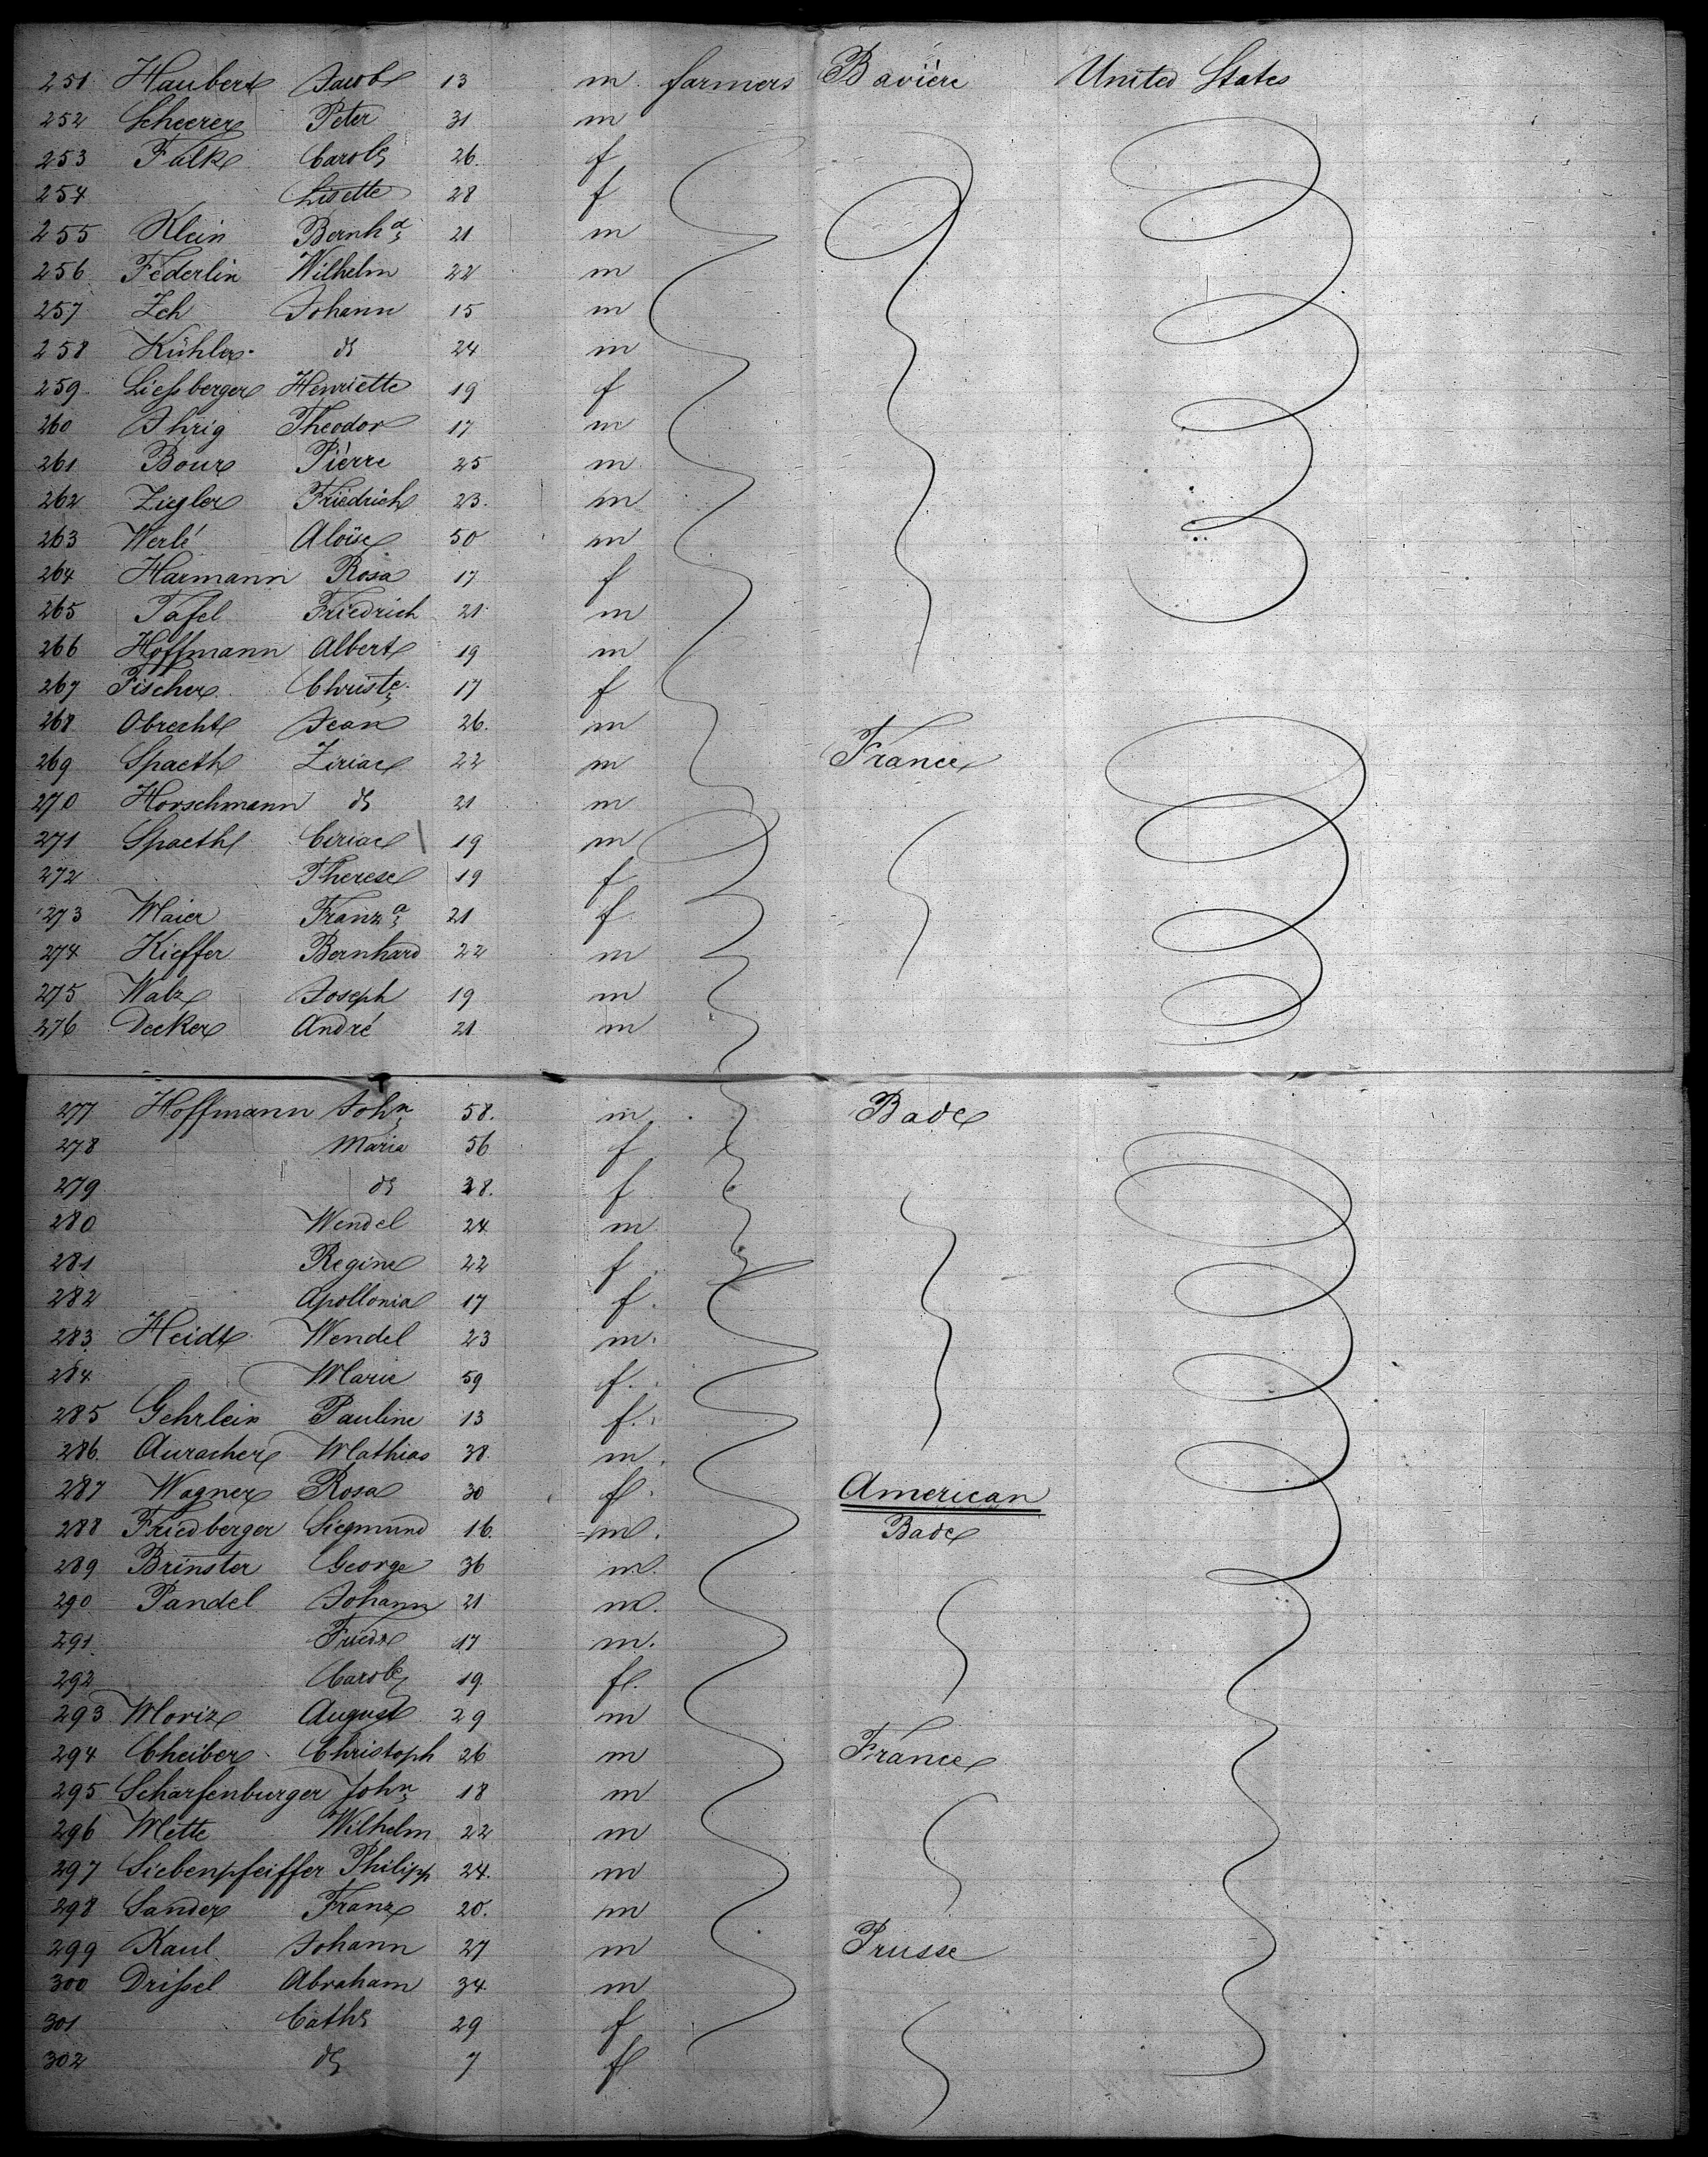 251 Haubert Jacob 13 m farmers Bavière United States
252 Scheerer Peter 31 m
253 Falk Carole 26. f
254 Lisette 28 f
255 Klein Bernhd 21 m
256 Federlin Wilhelm 22 m
257 Zch Johann 15 m
258 Kühler do 24 m
259 Liessberger Henriette 19 f
260 Ihrig Theodor 17 m
261 Bour Pierre 25 m
262 Ziegler Friedrich 23. m
263 Werlé Aloise 50 m
264 Harmann Rosa 17 f
265 Tafel Friedrich 21 m
266 Hoffmann Albert 19 m
267 Fischer Christe 17 f
268 Obrecht Jean 26. m
269 Spaeth Ziriac 22 m France
270 Horschmann do 21 m
271 Spaeth Ciriac 19 m
272 Therese 19 f
273 Maier Franza 21 f
274 Kieffer Bernhard 22 m
275 Walz Joseph 19 m
276 Decker André 21 m
277 Hoffmann John 58. m Bade
278 Maria 56 f
279 do 28. f
280 Wendel 24 m
281 Regine 22 f
282 Apollonia 17 f.
283 Heidt Wendel 23 m.
284 Marie 59 f.
285 Gehrlein Pauline 13 f.
286. Auracher Mathias 38 m.
287 Wagner Rosa 30 f American
288 Friedberger Siegmund 16. m. Bade
289 Brinster George 36 m.
290 Pandel Johann 21 m.
291 Friedr 17 m.
292 Carole 19 f.
293 Moriz August 29 m
294 Cheiber Christoph 26 m France
295 Scharfenburger John 18 m
296 Mette Wilhelm 22 m
297 Siebenpfeiffer Philipp 24. m
298 Sander Franz 20. m
299 Kaul Johann 27 m Prusse
300 Drissel Abraham 34 m
301 Cathe 29 f
302 do 7 f